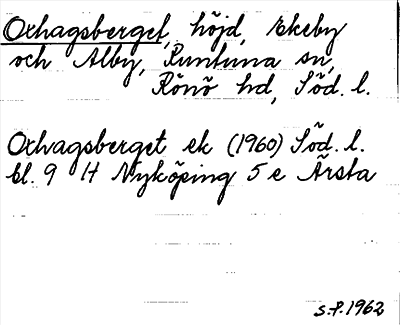 Oxhagsberget, höjd, Ekeby
och Alby, Runtuna sn,
Rönö hd, Söd. l.
Oxhagsberget ek (1960) Söd. l.
bl. 9 H Nyköping 5 e Årsta
S.P. 1962